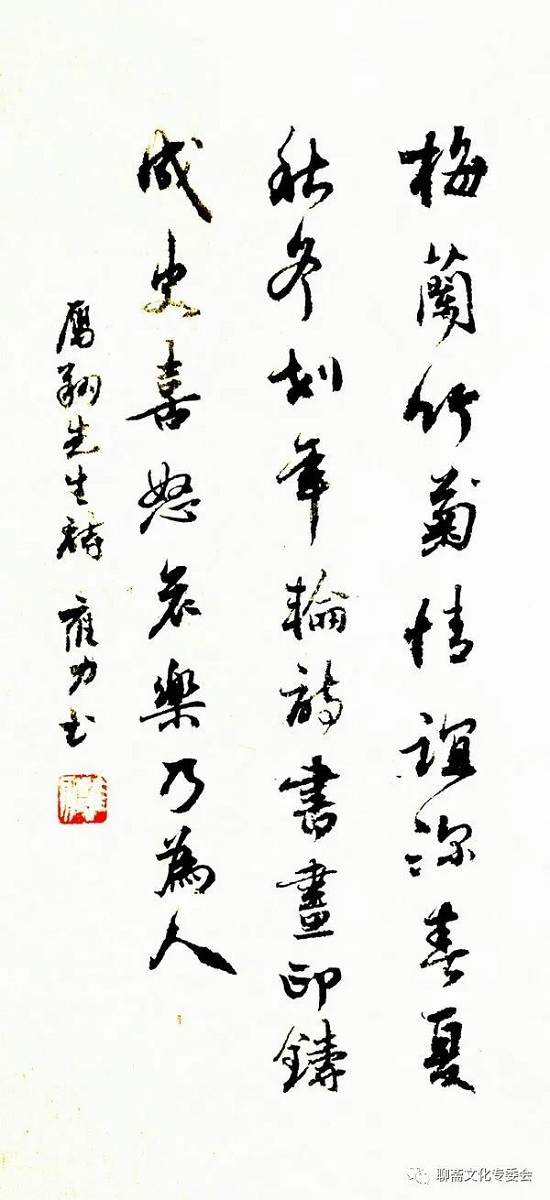 梅蘭竹菊情誼深春夏
秋冬刻年輪詩書畫印鑄
成史喜怒哀樂乃為人
先生詩 雁力书
聊斋文化专委会